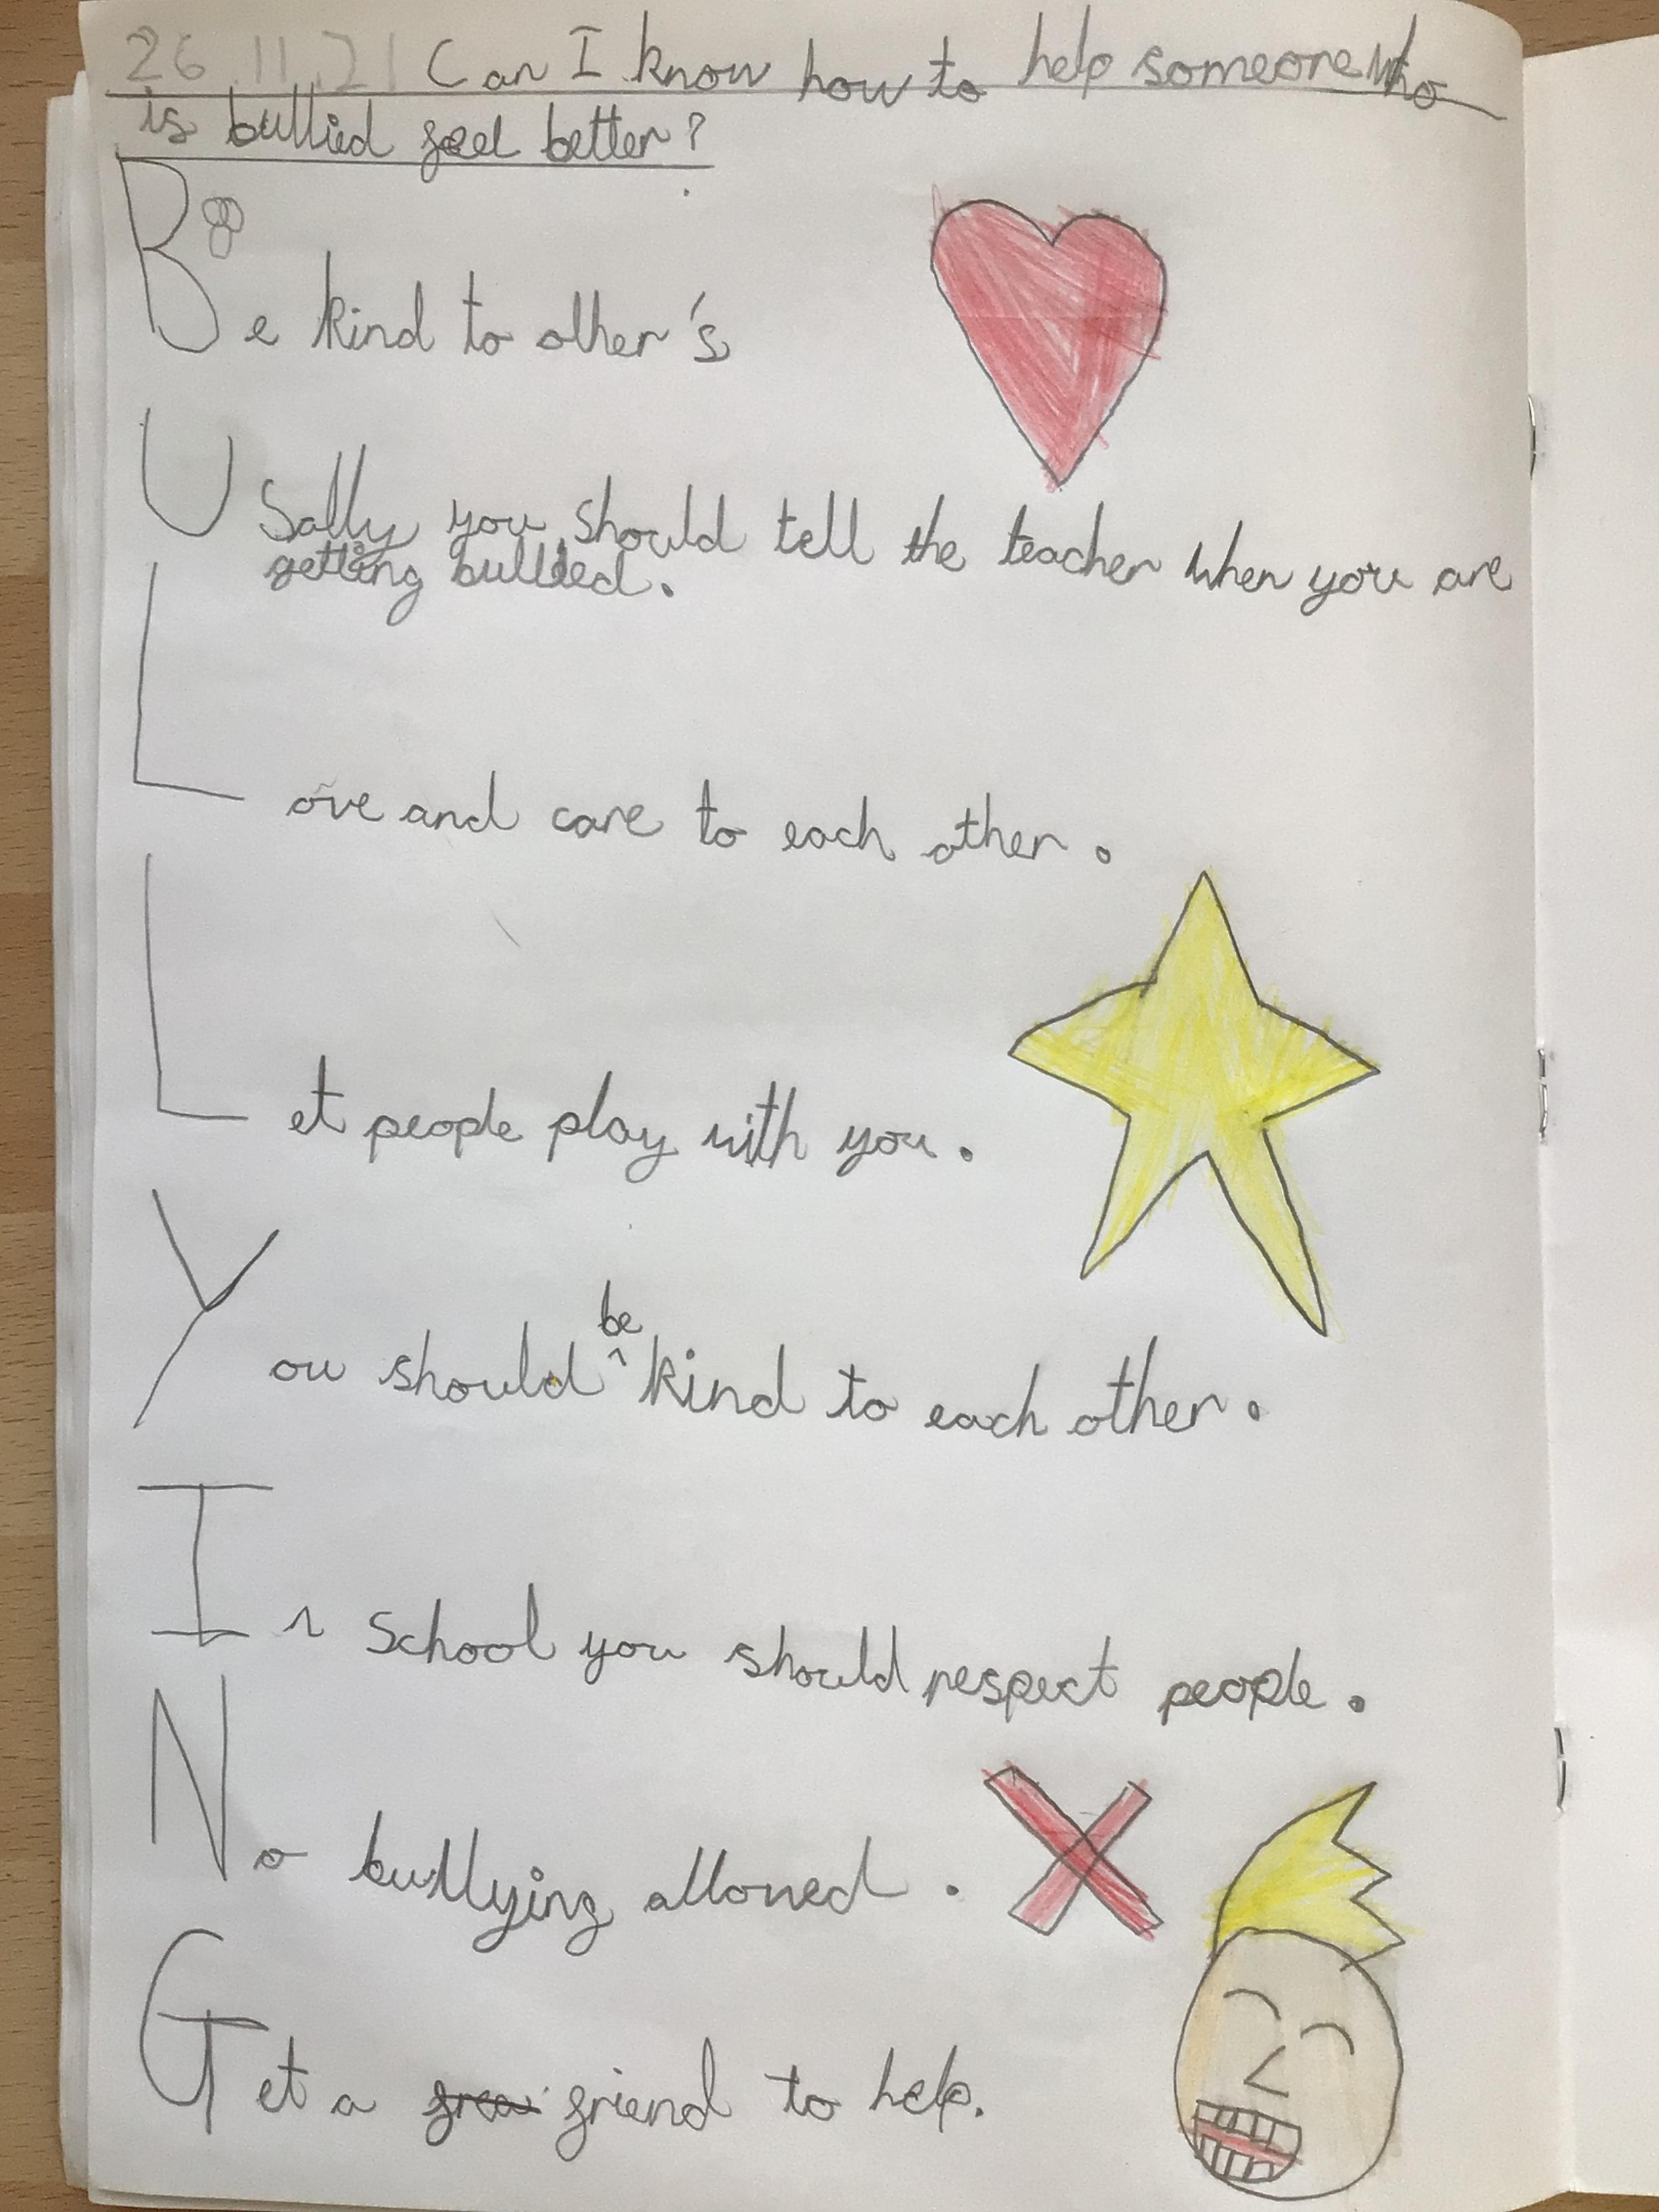 26.11.21 Can I know how to help someone who
is bullied feel better?
Be kind to other's
Usally you should tell the teacher when you are
getting bullied.
Love and care to each other.
Let people play with you.
You should be kind to each other.
In school you should respect people.
No bullying allowed.
Get a friend to help.